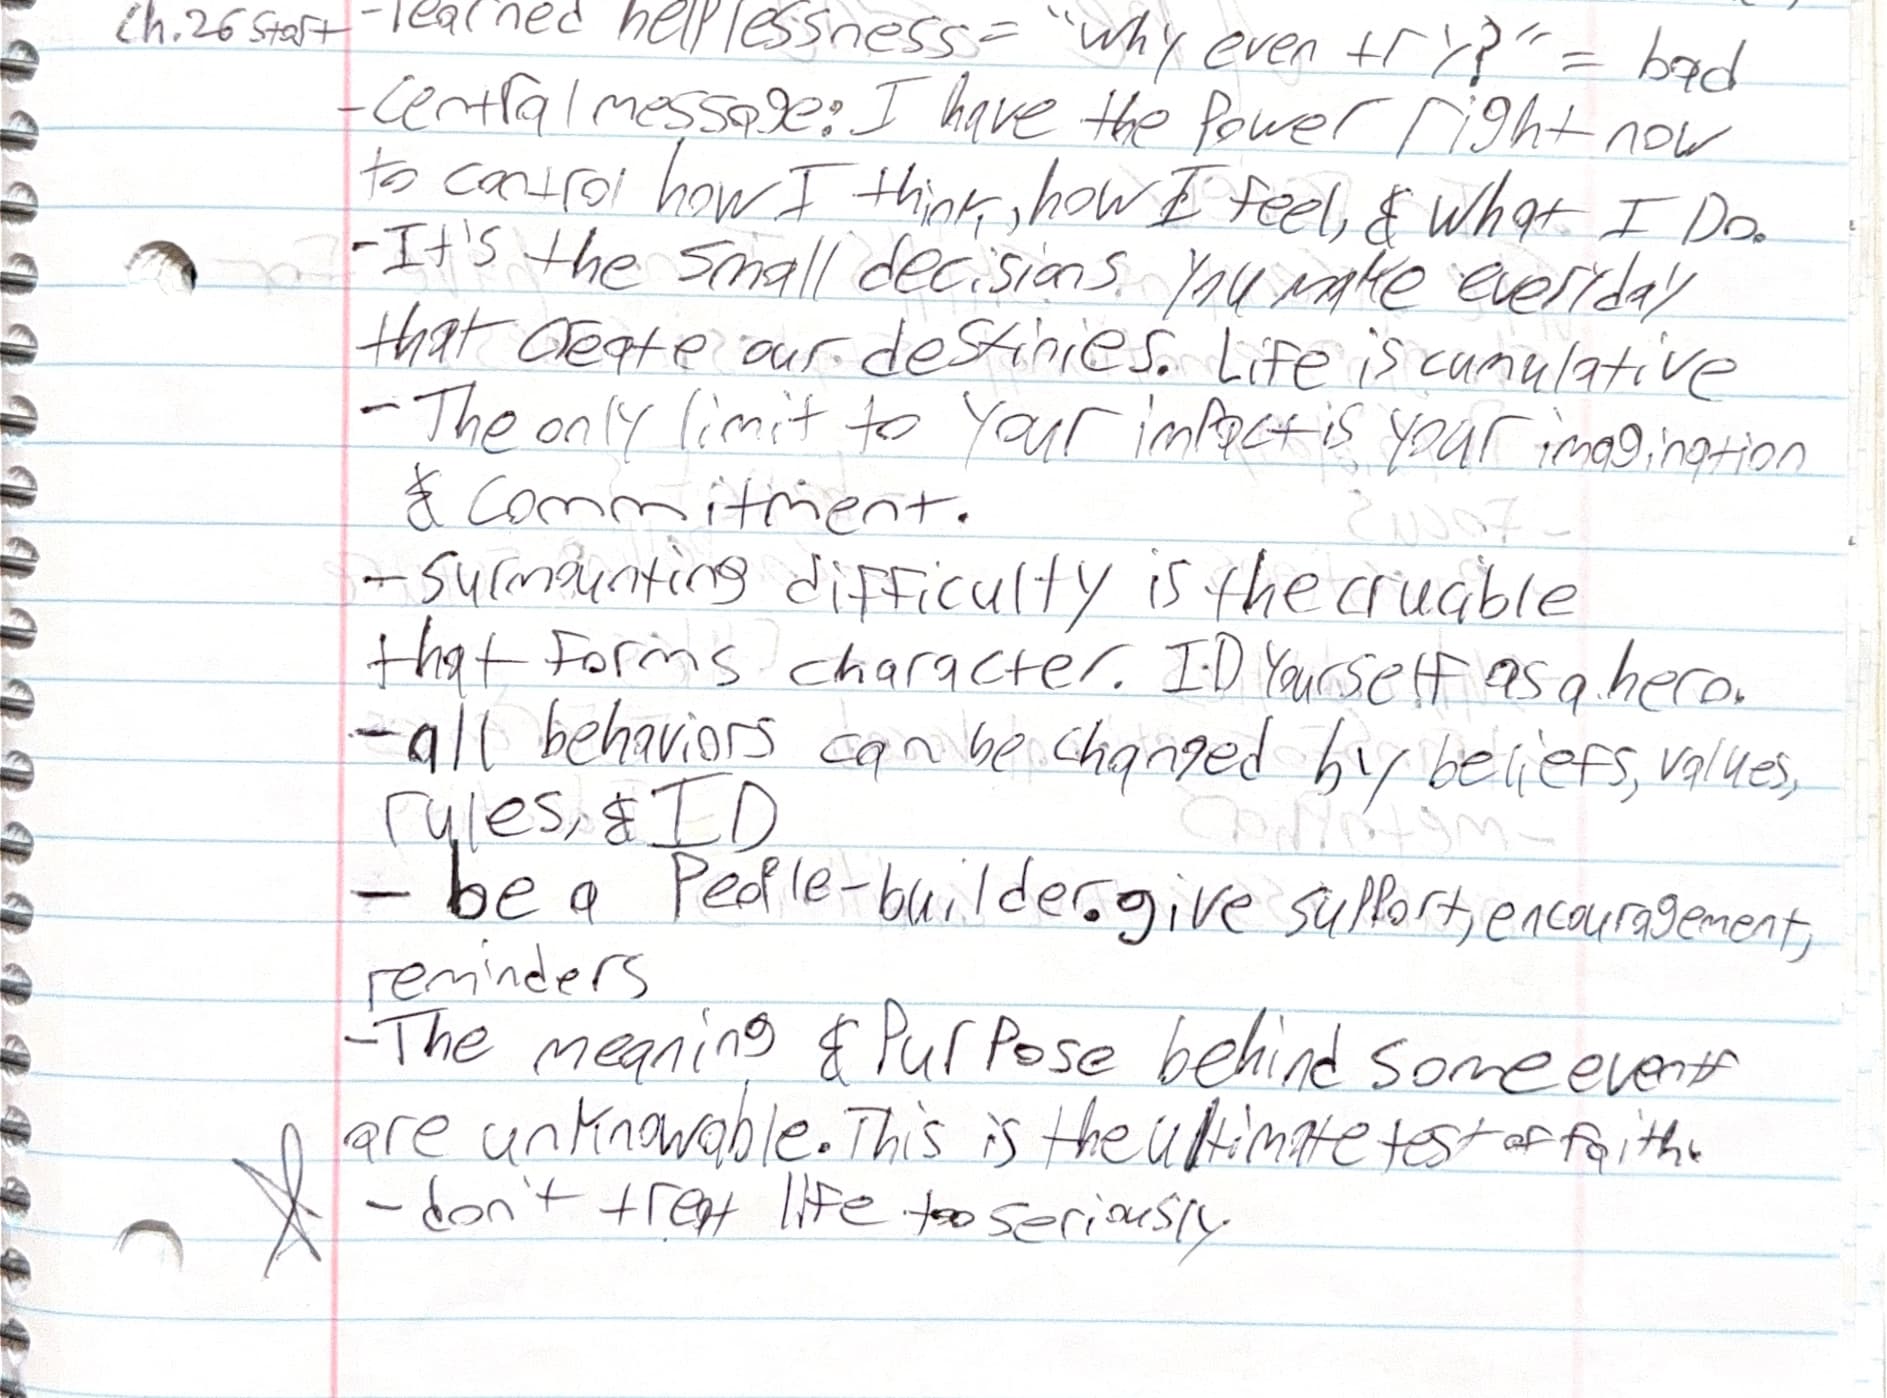 Ch.26 start -learned helplessness= "why even try?" = bad
-Central message: I have the Power right now
to control how I think, how I feel, & what I Do.
-It's the small decisions you make everyday
that create our destinies. Life is cumulative
-The only limit to your impact is your imagination
& commitment.
-surmounting difficulty is the crucible
that forms character. ID yourself as a hero.
-all behaviors can be changed by beliefs, values,
rules, & ID
- be a People-builder. give support, encouragement,
reminders
-The meaning & PurPose behind some events
are unknowable. This is the ultimate test of faith.
-don't treat life too seriously